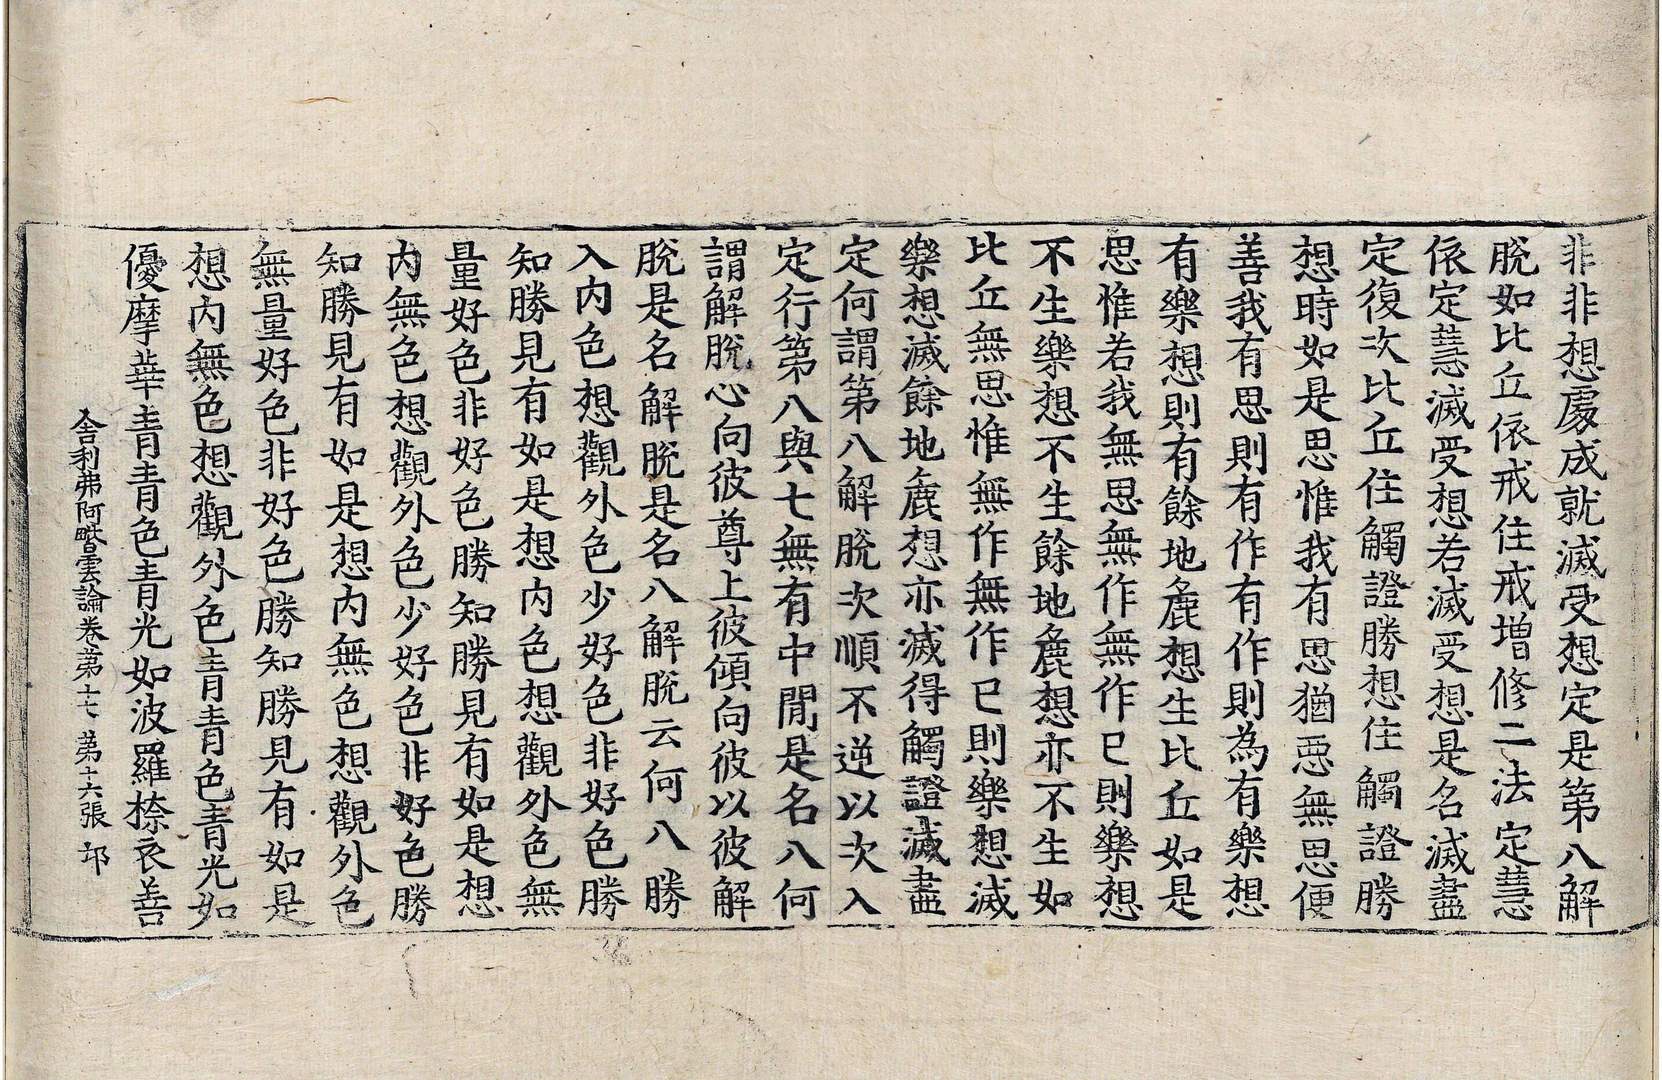 非非想處成就滅受想定是第八解
脫如比丘依戒住戒增修二法定慧
依定慧滅受想若滅受想是名滅盡
定復次比丘住觸證勝想住觸證勝
想時如是思惟我有思猶惡無思便
善我有思則有作有作則為有樂想
有樂想則有餘地麁想生比丘如是
思惟若我無思無作無作已則樂想
不生樂想不生餘地麁想亦不生如
比丘無思惟無作無作已則樂想滅
樂想滅餘地麁想亦滅得觸證滅盡
定何謂第八解脫次順不逆以次入
定行第八與七無有中間是名八何
謂解脫心向彼尊上彼傾向彼以彼解
脫是名解脫是名八解脫云何八勝
入內色想觀外色少好色非好色勝
知勝見有如是想內色想觀外色無
量好色非好色勝知勝見有如是想
內無色想觀外色少好色非好色勝
知勝見有如是想內無色想觀外色
無量好色非好色勝知勝見有如是
想內無色想觀外色青青色青光如
優摩華青青色青光如波羅㮈衣善
舍利弗阿毗曇論卷第十七 第十六張 邙